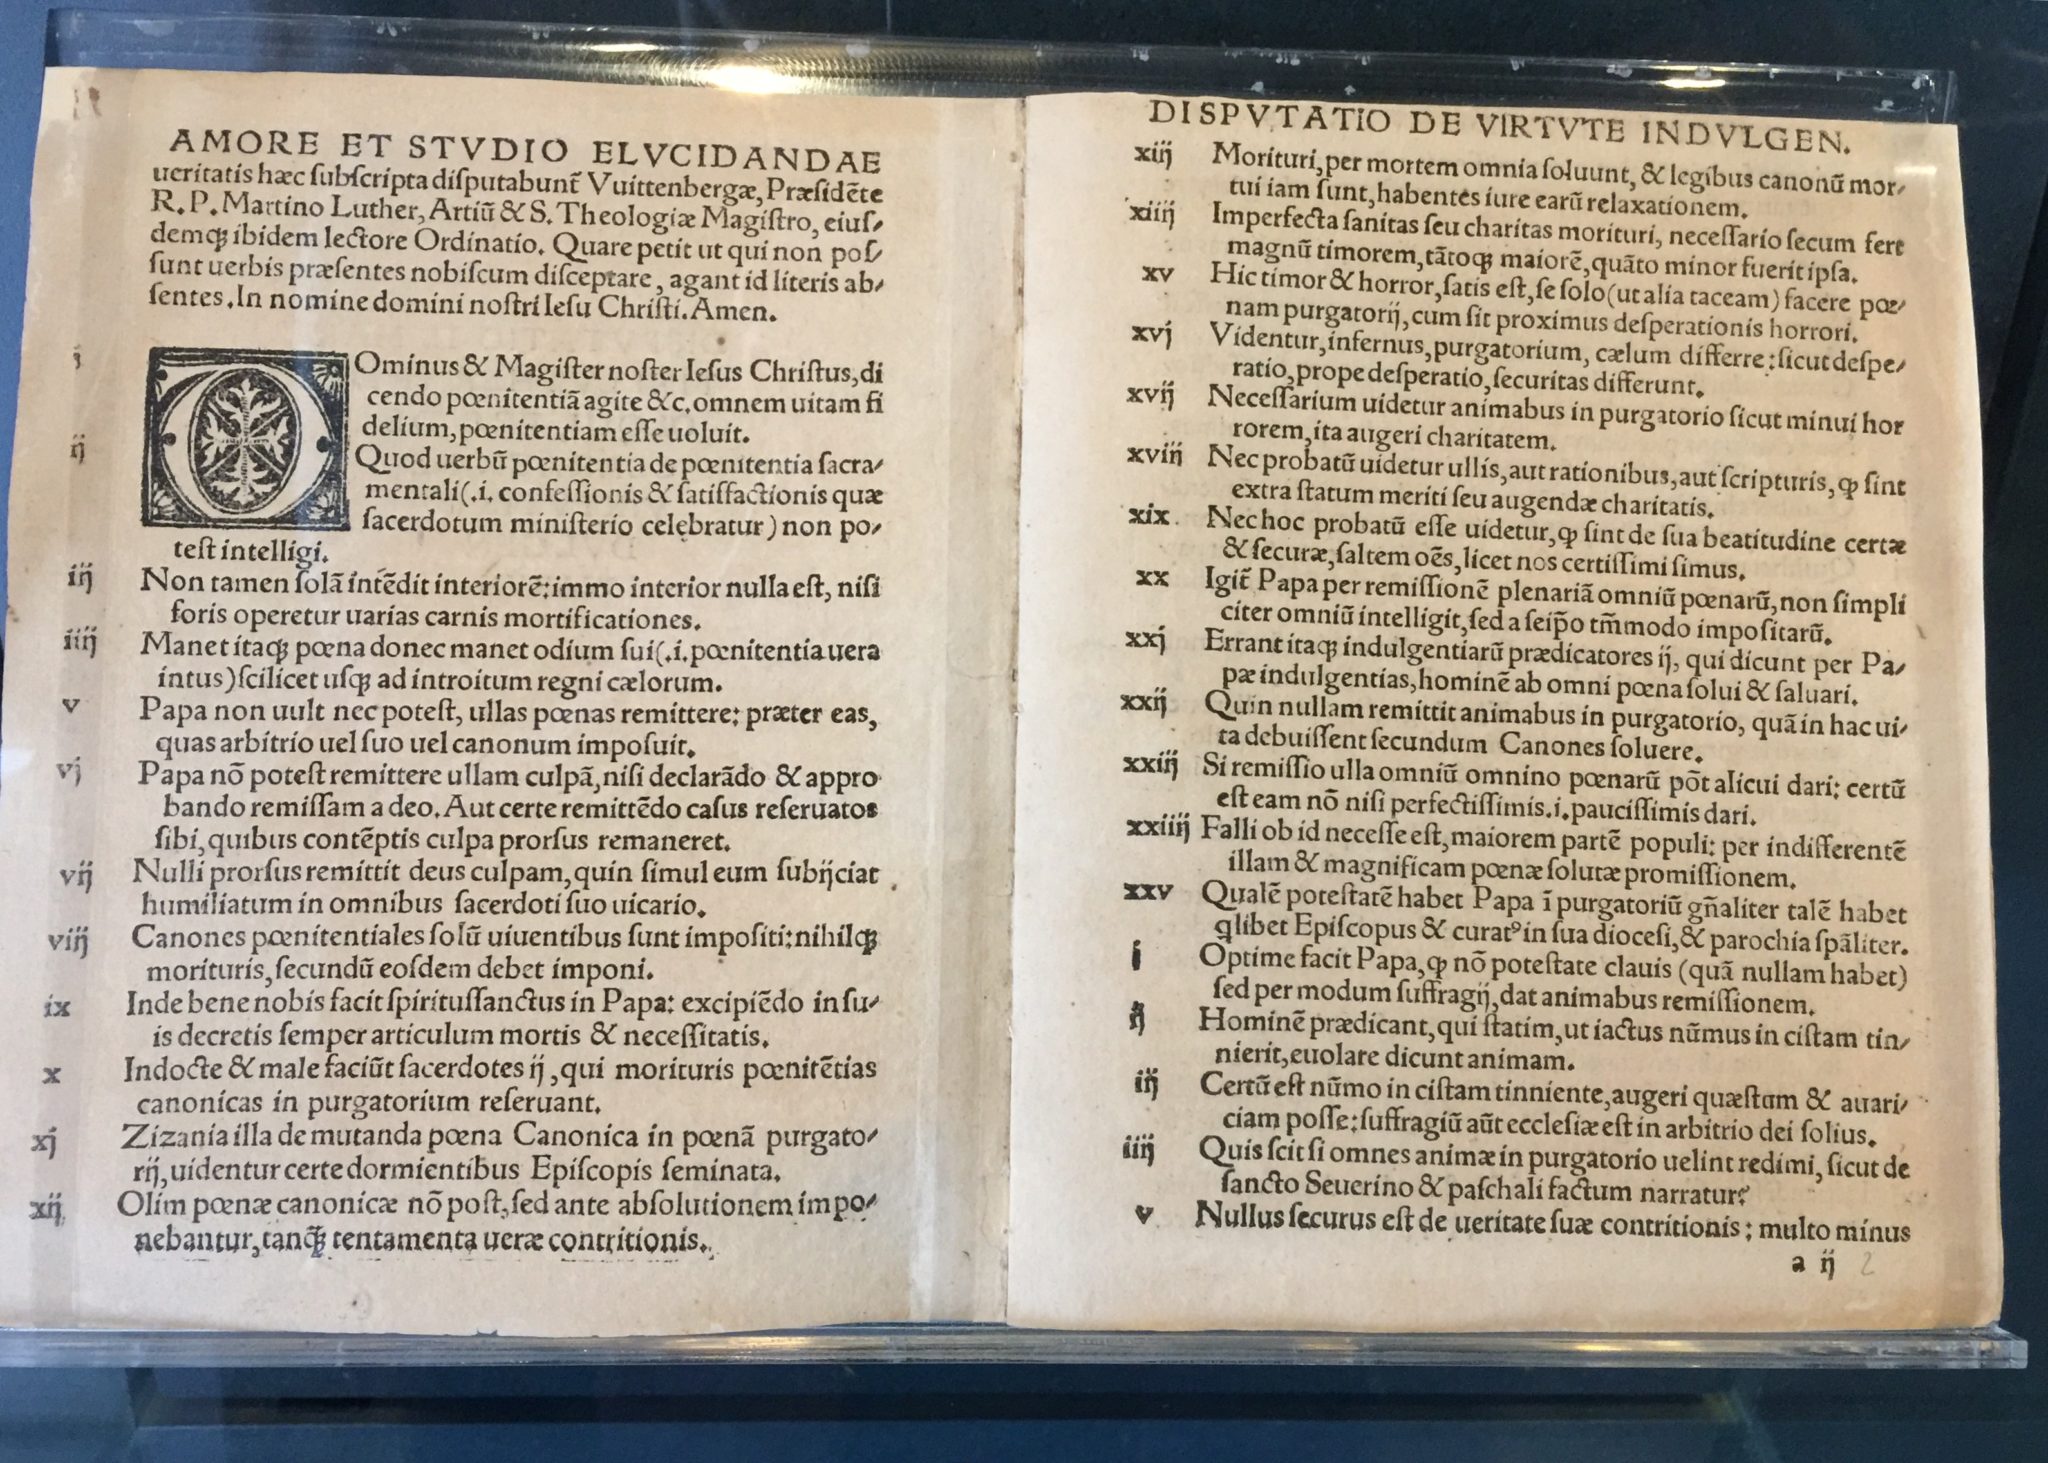 AMORE ET STVDIO ELVCIDANDAE
ueritatis hæc subscripta disputabunt̃ Vuittenbergæ, Præsidẽte
R. P. Martino Luther, Artiũ & S. Theologiæ Magistro, eius/
demqꝫ ibidem lectore Ordinatio. Quare petit ut qui non pos/
sunt uerbis præsentes nobiscum disceptare, agant id literis ab/
sentes. In nomine domini nostri Iesu Christi. Amen.
j Ominus & Magister noster Iesus Christus, di
cendo pœnitentiã agite &c. omnem uitam fi
delium, pœnitentiam esse uoluit.
ij Quod uerbũ pœnitentia de pœnitentia sacra/
mentali (.i. confessionis & satisfactionis quæ
sacerdotum ministerio celebratur) non po/
test intelligi.
iij Non tamen solã intẽdit interiorẽ: immo interior nulla est, nisi
foris operetur uarias carnis mortificationes.
iiij Manet itaqꝫ pœna donec manet odium sui (.i. pœnitentia uera
intus) scilicet usqꝫ ad introitum regni cælorum.
v Papa non uult nec potest, ullas pœnas remittere: præter eas,
quas arbitrio uel suo uel canonum imposuit.
vj Papa nõ potest remittere ullam culpã, nisi declarãdo & appro
bando remissam a deo. Aut certe remittẽdo casus reseruatos
sibi, quibus contẽptis culpa prorsus remaneret.
vij Nulli prorsus remittit deus culpam, quin simul eum subijciat
humiliatum in omnibus sacerdoti suo uicario.
viij Canones pœnitentiales solũ uiuentibus sunt impositi: nihilqꝫ
morituris, secundũ eosdem debet imponi.
ix Inde bene nobis facit spiritussanctus in Papa: excipiẽdo in su/
is decretis semper articulum mortis & necessitatis.
x Indocte & male faciũt sacerdotes ij, qui morituris pœnitẽtias
canonicas in purgatorium reseruant.
xj Zizania illa de mutanda pœna Canonica in pœnã purgato/
rij, uidentur certe dormientibus Episcopis seminata.
xij Olim pœnæ canonicæ nõ post, sed ante absolutionem impo/
nebantur, tanqꝫ tentamenta ueræ contritionis.
DISPVTATIO DE VIRTVTE INDVLGEN.
xiij Morituri, per mortem omnia soluunt, & legibus canonũ mor/
tui iam sunt, habentes iure earũ relaxationem.
xiiij Imperfecta sanitas seu charitas morituri, necessario secum fert
magnũ timorem, tãtoqꝫ maiorẽ, quãto minor fuerit ipsa.
xv Hic timor & horror, satis est, se solo (ut alia taceam) facere pœ/
nam purgatorij, cum sit proximus desperationis horrori.
xvj Videntur, infernus, purgatorium, cælum differre: sicut despe/
ratio, prope desperatio, securitas differunt.
xvij Necessarium uidetur animabus in purgatorio sicut minui hor
rorem, ita augeri charitatem.
xviij Nec probatũ uidetur ullis, aut rationibus, aut scripturis, ꝙ sint
extra statum meriti seu augendæ charitatis.
xix Nec hoc probatũ esse uidetur, ꝙ sint de sua beatitudine certæ
& securæ, saltem oẽs, licet nos certissimi simus.
xx Igit̃ Papa per remissionẽ plenariã omniũ pœnarũ, non simpli
citer omniũ intelligit, sed a seip̃o tm̃modo impositarũ.
xxj Errant itaqꝫ indulgentiarũ prædicatores ij, qui dicunt per Pa/
pæ indulgentias, hominẽ ab omni pœna solui & saluari.
xxij Quin nullam remittit animabus in purgatorio, quã in hac ui/
ta debuissent secundum Canones soluere.
xxiij Si remissio ulla omniũ omnino pœnarũ põt alicui dari: certũ
est eam nõ nisi perfectissimis .i. paucissimis dari.
xxiiij Falli ob id necesse est, maiorem partẽ populi: per indifferentẽ
illam & magnificam pœnæ solutæ promissionem.
xxv Qualẽ potestatẽ habet Papa ĩ purgatoriũ gñaliter talẽ habet
q̃libet Episcopus & curatꝰ in sua diocesi, & parochia spãliter.
j Optime facit Papa, ꝙ nõ potestate clauis (quã nullam habet)
sed per modum suffragij, dat animabus remissionem.
ij Hominẽ prædicant, qui statim, ut iactus nũmus in cistam tin/
nierit, euolare dicunt animam.
iij Certũ est nũmo in cistam tinniente, augeri quæstum & auari/
ciam posse: suffragiũ aũt ecclesiæ est in arbitrio dei solius.
iiij Quis scit si omnes animæ in purgatorio uelint redimi, sicut de
sancto Seuerino & paschali factum narratur?
v Nullus securus est de ueritate suæ contritionis: multo minus
a ij 2